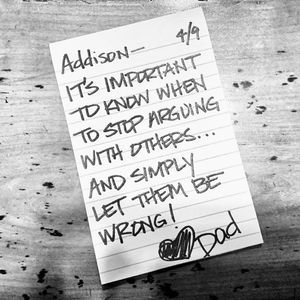 Addison— 4/9
IT'S IMPORTANT
TO KNOW WHEN
TO STOP ARGUING
WITH OTHERS...
AND SIMPLY
LET THEM BE
WRONG!
Dad